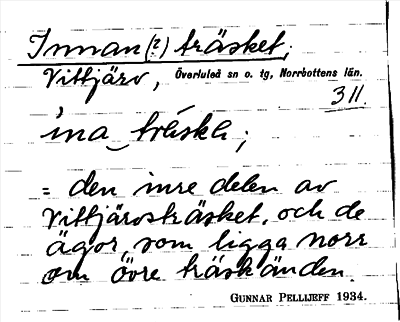 Innan (?) träsket;
Vittjärv, Överluleå sn o. tg, Norrbottens län.
311.
ina träskh;
= den inre delen av
Vittjärvsträsket, och de
ägor, som ligga norr
om övre träskänden.
GUNNAR PELLIJEFF 1934.